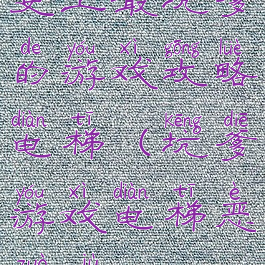 de yóu xì gōng lüè
的游戏攻略
diàn tī kēng diē
电梯（坑爹
yóu xì diàn tī è
游戏电梯恶